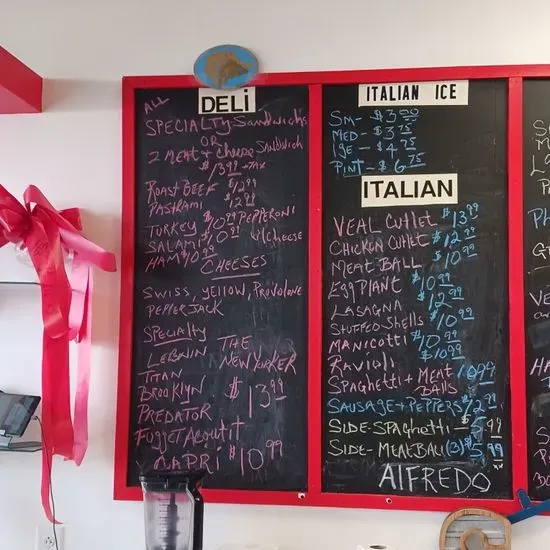 DELI
ALL
SPECIALTY Sandwich's
OR
2 MEAT + Cheese Sandwich
$13.99 +TAX
ROAST BEEF $12.99
PASTRAMI $12.99
TURKEY $10.99 PEPPERONI
SALAMI $10.99 w/CHEESE
HAM $10.99
CHEESES
SWISS, YELLOW, PROVOLONE
PEPPER JACK
SPECIALTY
LEBNUN THE
TITAN NEW YORKER
BROOKLYN $13.99
PREDATOR
FUGGET ABOUT IT
CAPRI $10.99
ITALIAN ICE
SM- $3.00
MED- $3.75
LGE- $4.75
PINT- $6.75
ITALIAN
VEAL CUTLET $13.99
CHICKEN CUTLET $12.99
MEAT BALL $10.99
EGG PLANT $10.99
LASAGNA $12.99
STUFFED SHELLS $10.99
MANICOTTI $10.99
RAVIOLI
SPAGHETTI + MEAT BALLS 10.99
SAUSAGE + PEPPERS $12.99
SIDE-SPAGHETTI - 5.99
SIDE-MEATBALL (3) $5.99
AlFREDO